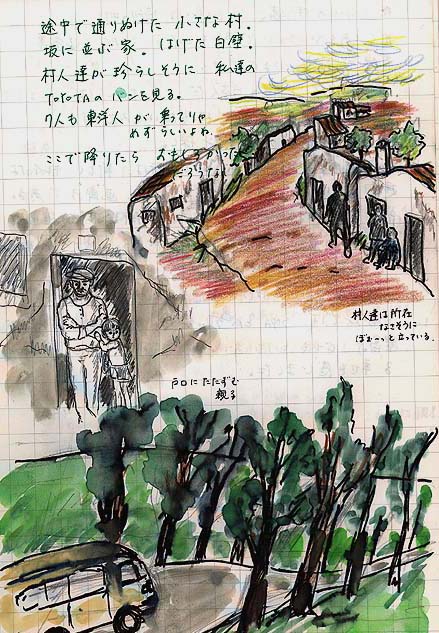 途中で通りぬけた 小さな村.
坂に並ぶ家. はげた白壁.
村人達が珍らしそうに 私達の
TOYOTAのバンを見る.
7人も東洋人が乗ってりゃ
めずらしいよね.
ここで降りたら おもしろかった
だろうな.
村人達は所在
なさそうに
ぼぉ〜っと立っている.
戸口にたたずむ
親子